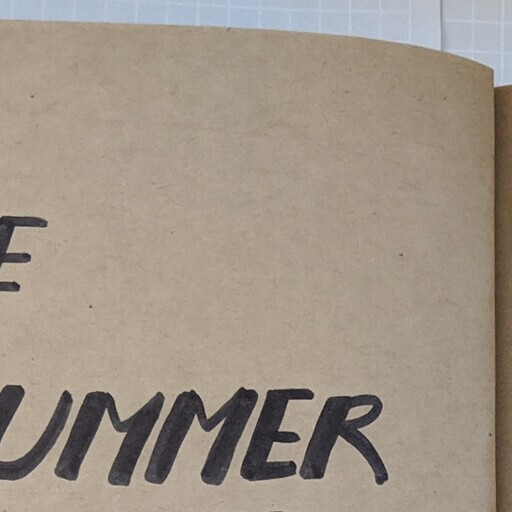 E
UMMER